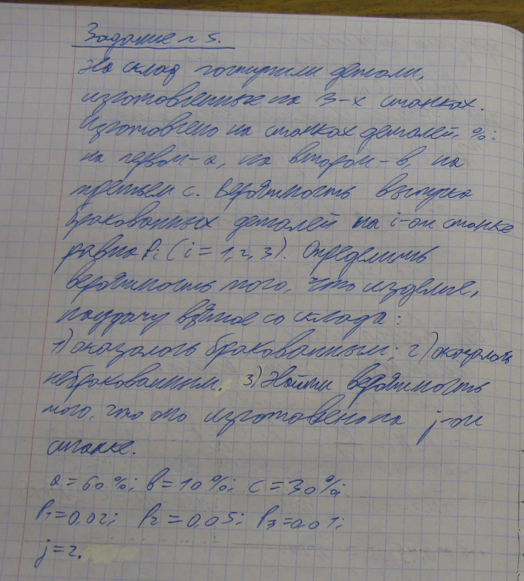 Задание № 5.
На склад поступили детали,
изготовленные на 3-х станках.
Изготовлено на станках деталей %:
на первом - а, на втором - в, на
третьем с. Вероятность выпуска
бракованных деталей на i-ом станке
равна Pi (i = 1, 2, 3). Определить
вероятность того, что изделие,
наудачу взятое со склада:
1) оказалось бракованным; 2) оказалось
небракованным. 3) Найти вероятность
того, что оно изготовлено на j-ом
станке.
a = 60%; в = 10%; c = 30%;
P1 = 0,02; P2 = 0,05; P3 = 0,01;
j = 2.